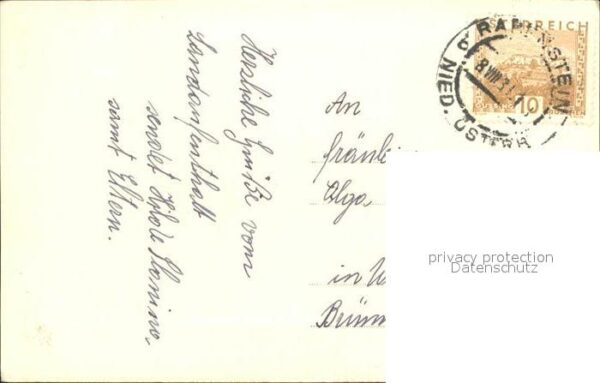 Herzliche Grüße vom
Landaufenthalt
sendet Hilde
samt Eltern.
An
Fräulei
Olga
in W
Brünn
ÖSTERREICH
10
RAPPENSTEIN
NIED. ÖSTERR
8 VIII 31
privacy protection
Datenschutz